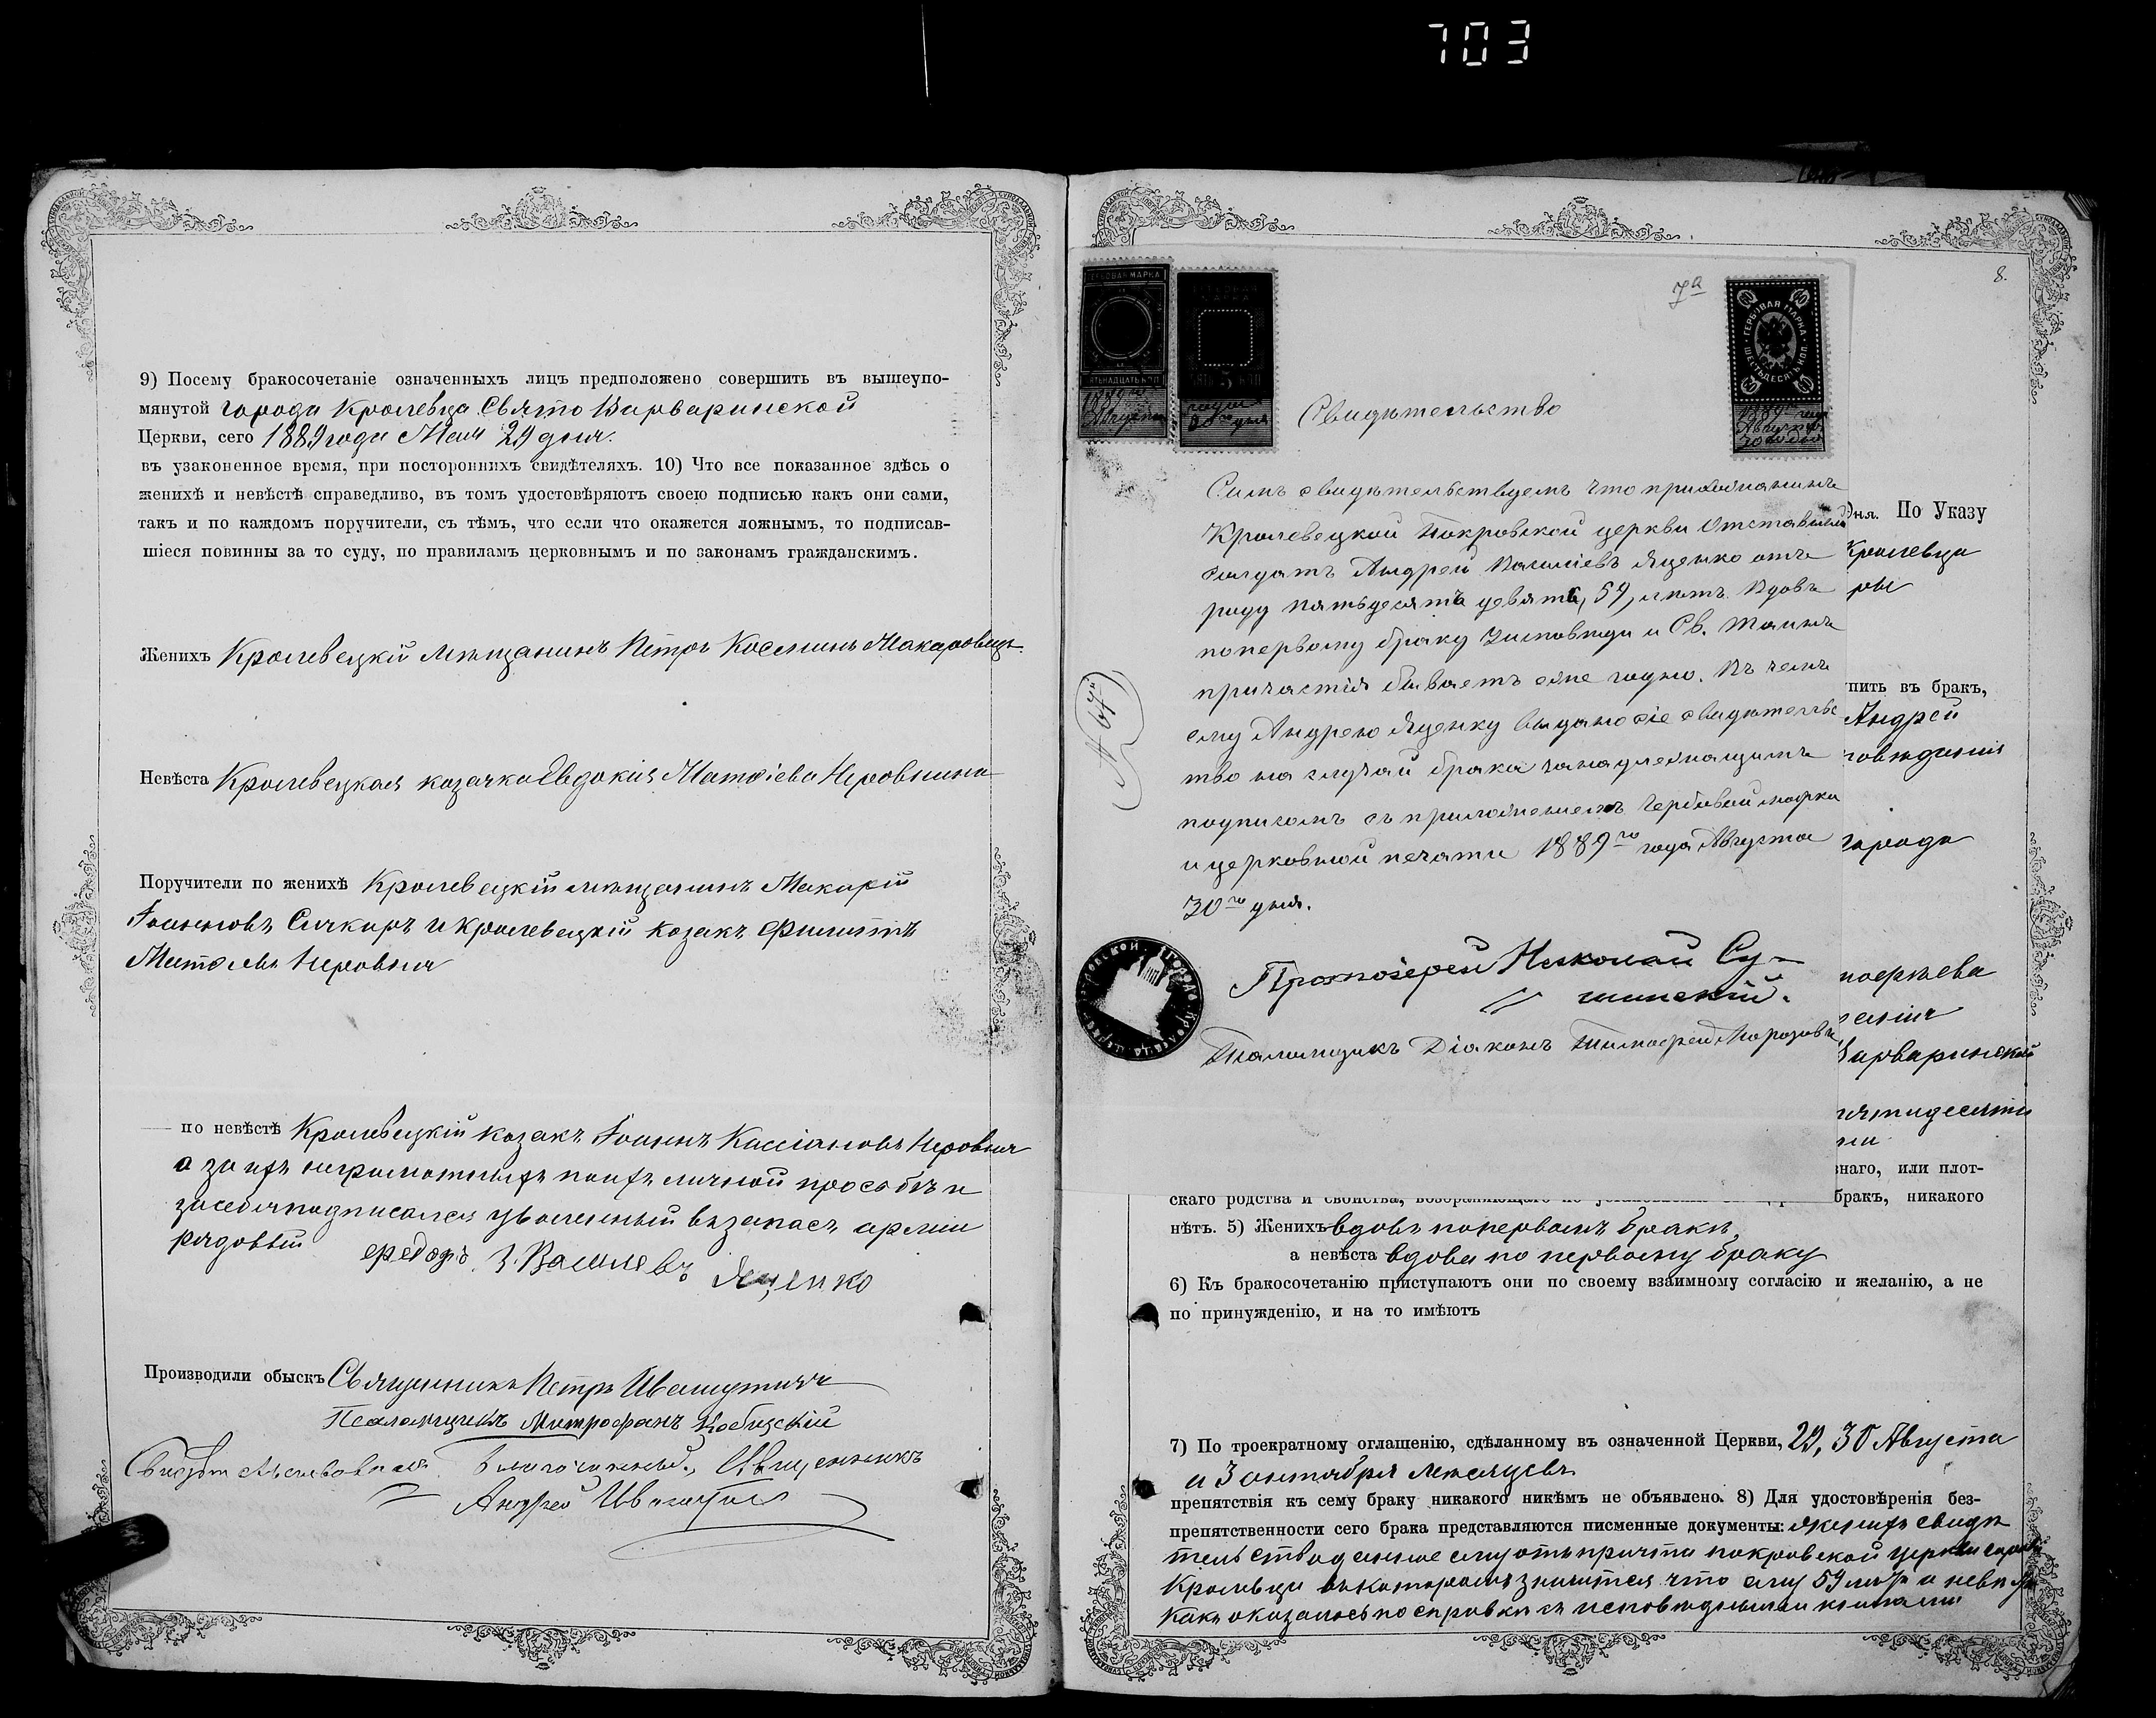 703
9) Посему бракосочетаніе означенныхъ лицъ предположено совершить въ вышеупо-
мянутой города Кролевца Свято Варваринской
Церкви, сего 1889 года Мая 29 дня.
въ узаконенное время, при постороннихъ свидѣтеляхъ. 10) Что все показанное здѣсь о
женихѣ и невѣстѣ справедливо, въ томъ удостовѣряютъ своею подписью какъ они сами,
такъ и по каждомъ поручители, съ тѣмъ, что если что окажется ложнымъ, то подписав-
шіеся повинны за то суду, по правиламъ церковнымъ и по законамъ гражданскимъ.
Женихъ Кролевецкій мѣщанинъ Петръ Косминъ Макаровецъ
Невѣста Кролевецкая козачка Евдокія Матѳіева Неровнина
Поручители по женихѣ Кролевецкій мѣщанинъ Макарій
Іоанновъ Сичкаръ и Кролевецкій козакъ Филиппъ
Матѳіевъ Неровня
по невѣстѣ Кролевецкій козакъ Іоаннъ Кассіановъ Неровня
а за ихъ неграмотныхъ по ихъ личной просьбѣ и
за себя подписался уволенный въ запасъ арміи
рядовый Ѳедоръ Васильевъ Яценко
Производили обыскъ Священникъ Петръ Ивашутичъ
Псаломщикъ Митрофанъ Кобизскій
Свидѣтельствовалъ Благочинный, Священникъ
Андрей Ивашутичъ
8.
7а
ГЕРБОВАЯ МАРКА
ПЯТНАДЦАТЬ КОП
1889го
Августа
ГЕРБОВАЯ МАРКА
ПЯТЬ 5 КОП
года
30го дня
60 60
ГЕРБОВАЯ МАРКА
ШЕСТЬДЕСЯТЪ КОП
60 60
1889го года
Августа
30го дня
Свидѣтельство
Симъ свидѣтельствуемъ что прихожанинъ
Кролевецкой Покровской церкви Отставной
солдатъ Андрей Васильевъ Яценко отъ
роду пятьдесятъ девять, 59, лѣтъ вдовъ
по первому браку Исповѣди и Св. Таинъ
причастія бываетъ ежегодно. Въ чемъ
ему Андрею Яценку выдано сіе свидѣтельс
тво на случай брака за надлежащимъ
подписомъ съ приложеніемъ Гербовой марки
и церковной печати 1889го года Августа
30го дня.
№ 67й
Протоіерей Николай Су-
шинскій.
Псаломщикъ Діаконъ Тимоѳей Морозовъ
Дня. По Указу
Кролевца
ры
пить въ бракъ,
Андрей
повѣданія
города
Варваринской
пятидесяти
знаго, или плот-
скаго родства и свойства, бракъ, никакого
нѣтъ. 5) Женихъ вдовъ по первомъ бракѣ,
а невѣста вдова по первому браку
6) Къ бракосочетанію приступаютъ они по своему взаимному согласію и желанію, а не
по принужденію, и на то имѣютъ
7) По троекратному оглашенію, сдѣланному въ означенной Церкви, 29, 30 Августа
и 3 сентября мѣсяцевъ
препятствія къ сему браку никакого никѣмъ не объявлено. 8) Для удостовѣренія без-
препятственности сего брака представляются писменные документы: женихъ свидѣ
тельство данное ему отъ причта покровской церкви города
Кролевца въ которомъ значится что ему 59 лѣтъ а невѣста
какъ оказалось по справкѣ съ исповѣдными книгами